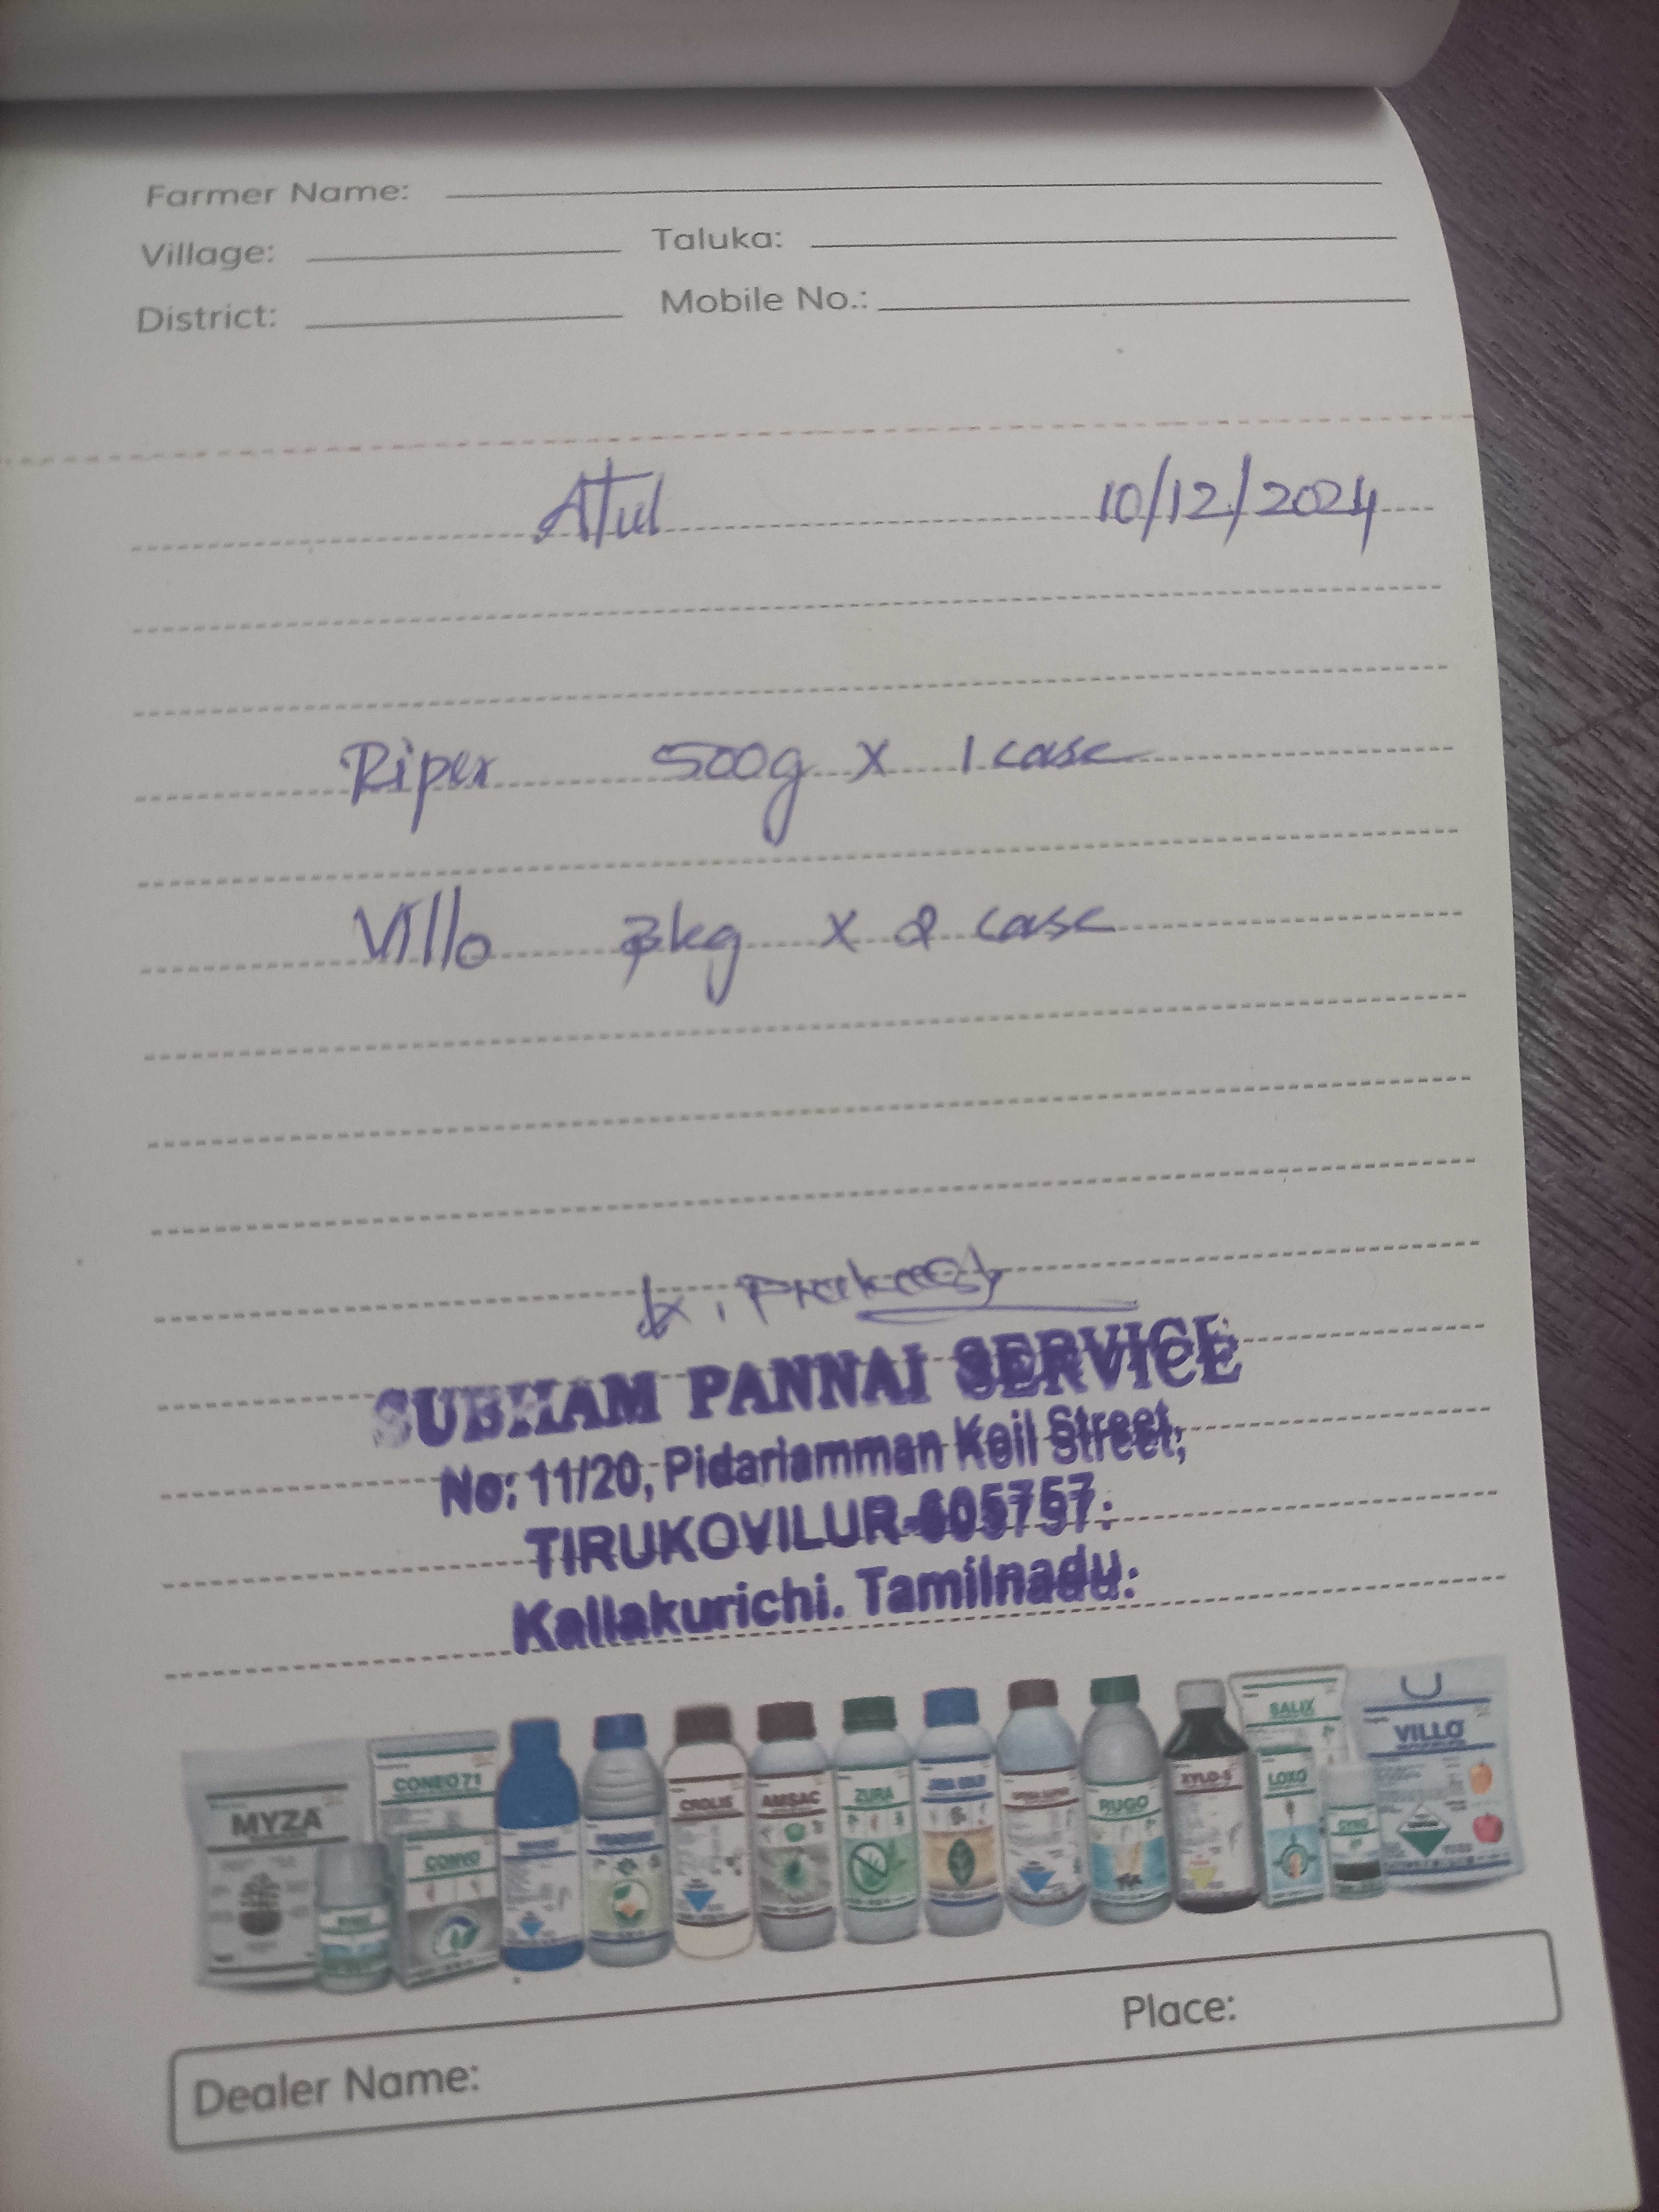 Farmer Name:
Village: Taluka:
District: Mobile No.:
Atul 10/12/2024
Riper 500g x 1 case
Villo kg x 2 case
SUBHAM PANNAI SERVICE
No: 11/20, Pidariamman Koil Street,
TIRUKOVILUR-605757.
Kallakurichi. Tamilnadu.
MYZA
CONEO 71
CONVO
CROLIS
AMSAC
ZURA
RUGO
XYLO-S
SALIX
LOXO
VILLO
Place:
Dealer Name: